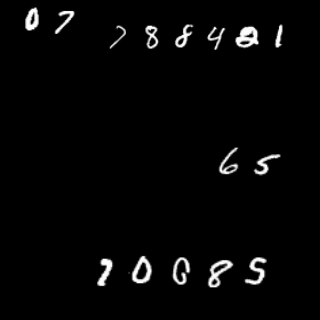 07
788421
65
70685